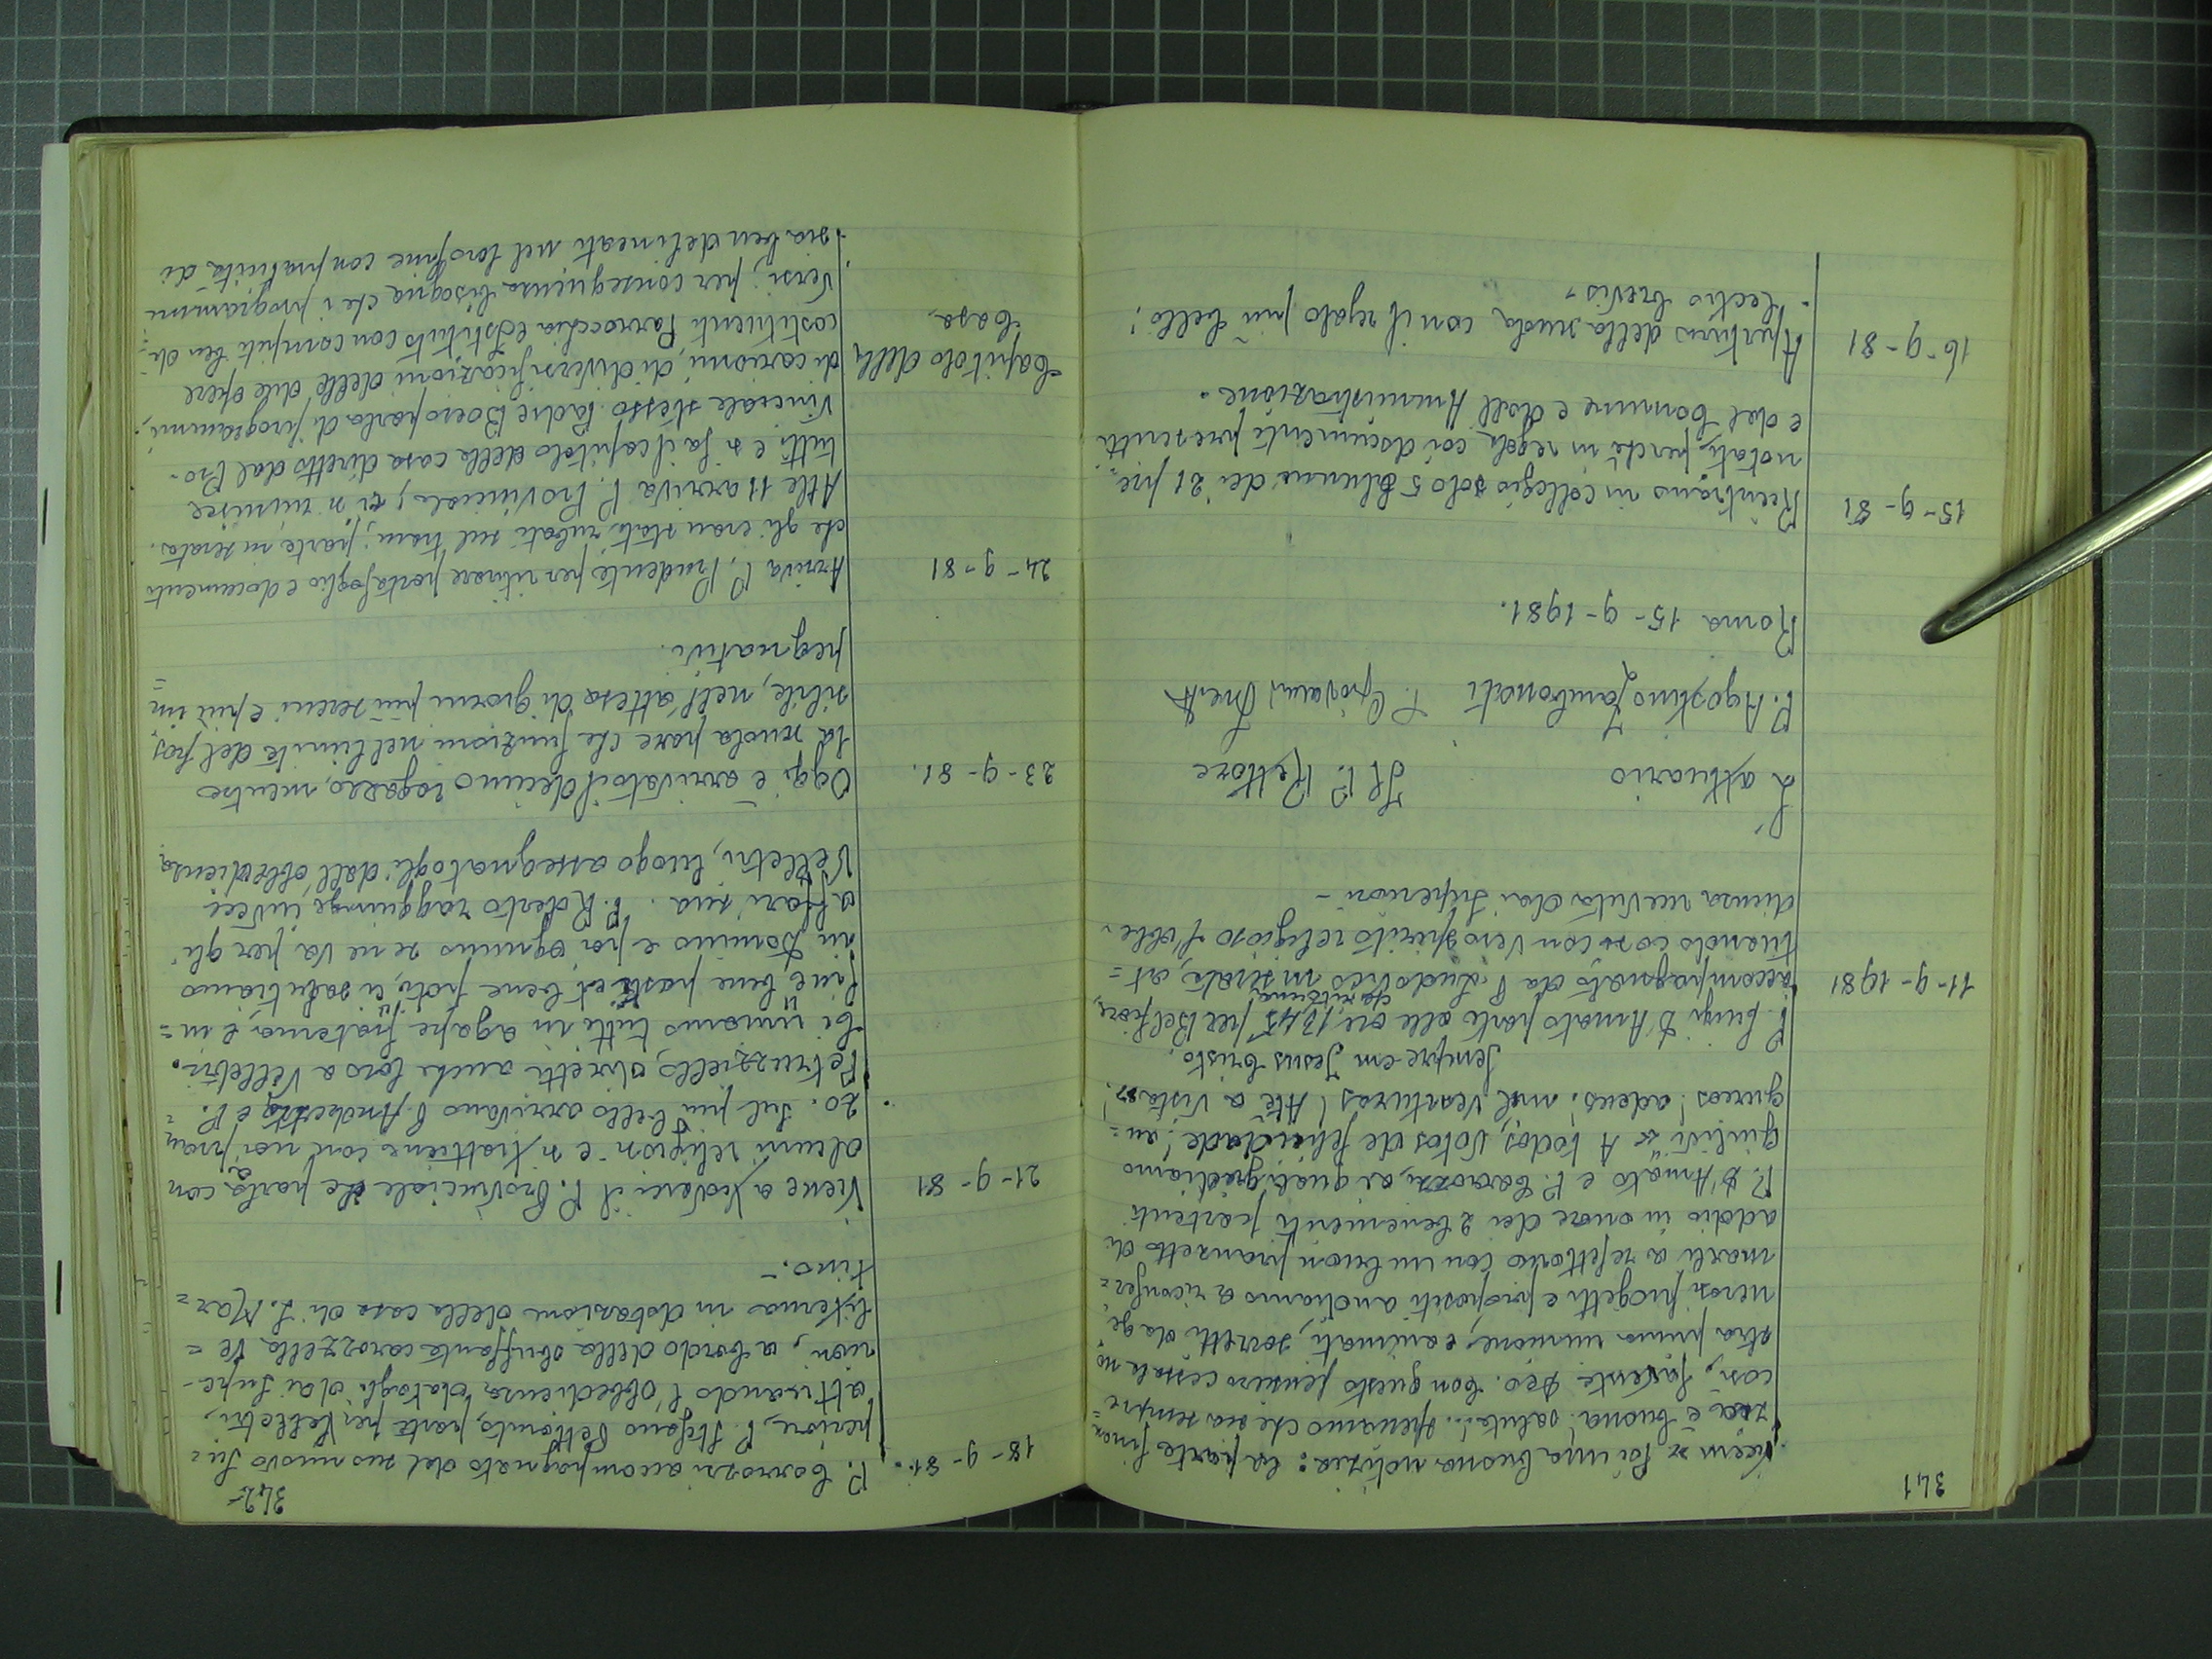 341
si è poi una buona notizia: la parte finan=
zia è buona. salute!.. speriamo che sia sempre
così, favente Deo. Con questo pensiero cessa la no
stra prima riunione, e animati, sorretti da ge
nerosi progetti e propositi andiamo a riconfer=
marli a refettorio con un buon pranzetto di
addio in onore dei 2 benemeriti partenti
P. D'Amato e P. Carrozzi, ai quali gridiamo
giulivi "A todos, votos de felicidade; au=
gurios! adeus! mil venturas! Até a vista!
Sempre em Jesus Cristo.
11-9-1981
P. Luigi D'Amato parte alle ore 13,45 per Belfiore,
accompagnato da P. Ludovico in serata, at=
tuando così con vero spirito religioso l'obbe-
dienza ricevuta dai Superiori -
L'attuario Il P. Rettore
P. Agostino Zambonati P. Giovanni
Roma 15-9-1981.
15-9-81
Rientrano in collegio solo 5 alunni dei 21 pre=
notati, perché in regola coi documenti prescritti
e dal Comune e dall'Amministrazione.
16-9-81
Apertura della scuola con il regalo più bello!
Lectio brevis.
342
18-9-81.
P. Carrozzi accompagnato dal suo nuovo Su=
periore, P. Stefano Pettoruto, parte per Velletri,
attivando l'obbedienza datagli dai Supe-
riori, a bordo della sbuffante carrozzella ve=
literna in dotazione della casa di S. Mar=
tino.-
21-9-81
Viene a vederci il P. Provinciale che parla con
alcuni religiosi e si trattiene con noi a pran=
zo. Sul più bello arrivano P. e P.
Petruzziello, diretti anche loro a Velletri.
Ci uniamo tutti in agape fraterna e in=
fine, bene pasti et bene poti, ci salutiamo
in Domino e poi ognuno se ne va per gli
affari suoi. P. Roberto raggiunge invece
Velletri, luogo assegnatogli dall'obbedienza.
23-9-81.
Oggi è arrivato il decimo ragazzo, mentre
la scuola pare che funzioni nel limite del pos
sibile, nell'attesa di giorni più sereni e più im=
pegnativi.
24-9-81
Arriva P. Prudente per ritirare portafoglio e documenti
che gli eran stati rubati sul tram; parte in serata.
Alle 11 arriva P. Provinciale; ci si riunisce
tutti e si fa il capitolo della casa diretto dal Pro-
Capitolo della
Casa
vinciale stesso. Padre Boero parla di programmi,
di carismi, di diversificazioni delle due opere
costituenti Parrocchia ed Istituto con compiti ben di=
versi; per conseguenza bisogna che i programmi
sia ben delineati nel loro fine con praticità di